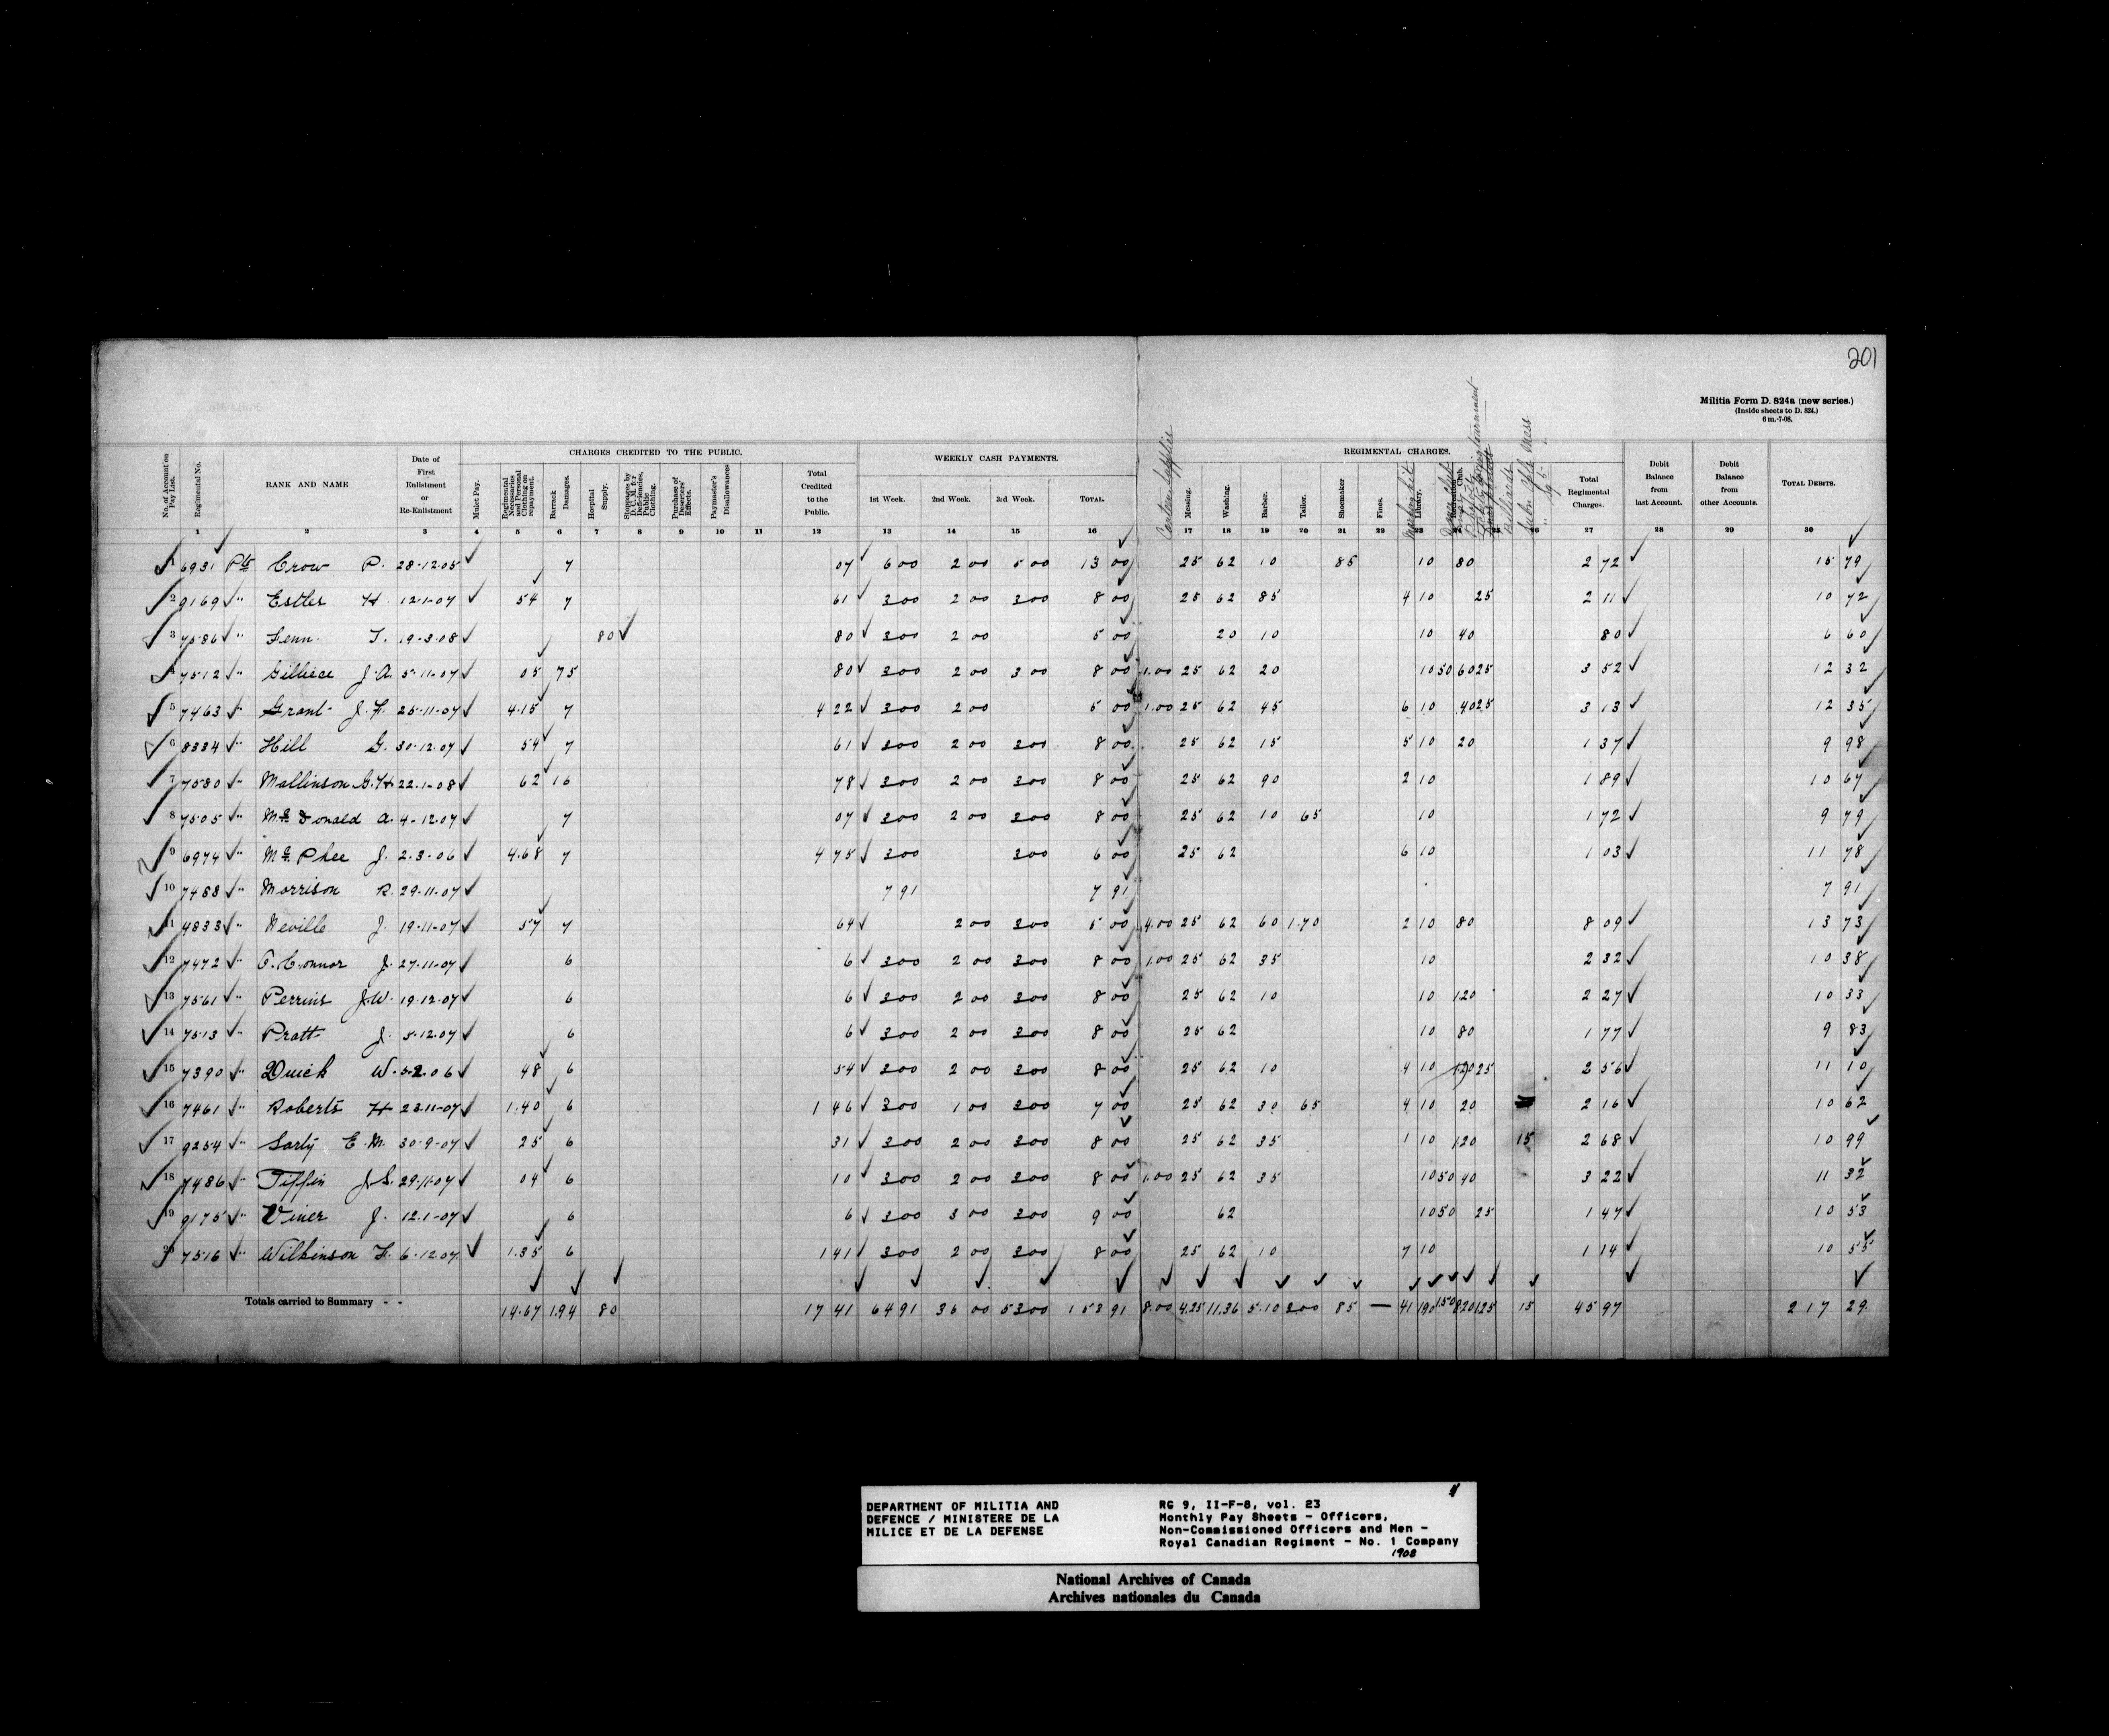 201
Militia Form D. 824a (new series.)
(Inside sheets to D. 824.)
6 m.-7-08.
CHARGES CREDITED TO THE PUBLIC. WEEKLY CASH PAYMENTS. REGIMENTAL CHARGES.
No. of Account on Pay List. Regimental No. RANK AND NAME Date of First Enlistment or Re-Enlistment Mulct Pay. Regimental Necessaries and Personal Clothing on repayment. Barrack Damages. Hospital Supply. Stoppages by D.C.M. for Deficiencies, Public Clothing. Purchase of Deserters' Effects. Paymaster's Disallowances Total Credited to the Public. 1st Week. 2nd Week. 3rd Week. TOTAL. Canteen Messing. Washing. Barber. Tailor. Shoemaker Fines. Library. Club. Billiards Mess Total Regimental Charges. Debit Balance from last Account. Debit Balance from other Accounts. TOTAL DEBITS.
1 2 3 4 5 6 7 8 9 10 11 12 13 14 15 16 17 18 19 20 21 22 23 24 25 26 27 28 29 30
1 6931 Pte Crow P. 28-12-05 7 07 6 00 2 00 5 00 13 00 25 62 10 85 10 80 2 72 15 79
2 9169 " Estler H. 12-1-07 54 7 61 3 00 2 00 3 00 8 00 25 62 85 4 10 25 2 11 10 72
3 7586 " Fenn T. 19-3-08 80 80 3 00 2 00 5 00 20 10 10 40 80 6 60
4 7512 " Gilliece J.A. 5-11-07 05 75 80 3 00 2 00 3 00 8 00 1.00 25 62 20 10 50 60 25 3 52 12 32
5 7463 " Grant J.F. 25-11-07 4.15 7 4 22 3 00 2 00 5 00 1.00 25 62 45 6 10 40 25 3 13 12 35
6 8334 " Hill G. 30-12-07 54 7 61 3 00 2 00 3 00 8 00 25 62 15 5 10 20 1 37 9 98
7 7530 " Mallinson G.H. 22-1-08 62 16 78 3 00 2 00 3 00 8 00 25 62 90 2 10 1 89 10 67
8 7505 " McDonald A. 4-12-07 7 07 3 00 2 00 3 00 8 00 25 62 10 65 10 1 72 9 79
9 6974 " McPhee J. 2-3-06 4.68 7 4 75 3 00 3 00 6 00 25 62 6 10 1 03 11 78
10 7488 " Morrison R. 29-11-07 7 91 7 91 7 91
11 4833 " Neville J. 19-11-07 57 7 64 2 00 3 00 5 00 4.00 25 62 60 1.70 2 10 80 8 09 13 73
12 7472 " O'Connor J. 27-11-07 6 6 3 00 2 00 3 00 8 00 1.00 25 62 35 10 2 32 10 38
13 7561 " Perrins J.W. 19-12-07 6 6 3 00 2 00 3 00 8 00 25 62 10 10 120 2 27 10 33
14 7513 " Pratt J. 5-12-07 6 6 3 00 2 00 3 00 8 00 25 62 10 80 1 77 9 83
15 7390 " Quick W. 5-2-06 48 6 54 3 00 2 00 3 00 8 00 25 62 10 4 10 120 25 2 56 11 10
16 7461 " Roberts H 23-11-07 1.40 6 1 46 3 00 1 00 3 00 7 00 25 62 30 65 4 10 20 2 16 10 62
17 9254 " Sarty E.M. 30-9-07 25 6 31 3 00 2 00 3 00 8 00 25 62 35 1 10 120 15 2 68 10 99
18 7486 " Tiffin J.S. 29-11-07 04 6 10 3 00 2 00 3 00 8 00 1.00 25 62 35 10 50 40 3 22 11 32
19 9175 " Viner J. 12-1-07 6 6 3 00 3 00 3 00 9 00 62 10 50 25 1 47 10 53
20 7516 " Wilkinson F. 6-12-07 1.35 6 1 41 3 00 2 00 3 00 8 00 25 62 10 7 10 1 14 10 55
Totals carried to Summary - - 14.67 1.94 80 17 41 64 91 36 00 53 00 153 91 8.00 4.25 11.36 5.10 3.00 85 — 41 190 150 820 125 15 45 97 217 29
DEPARTMENT OF MILITIA AND
DEFENCE / MINISTERE DE LA
MILICE ET DE LA DEFENSE
RG 9, II-F-8, vol. 23
Monthly Pay Sheets - Officers,
Non-Commissioned Officers and Men -
Royal Canadian Regiment - No. 1 Company
1908
National Archives of Canada
Archives nationales du Canada